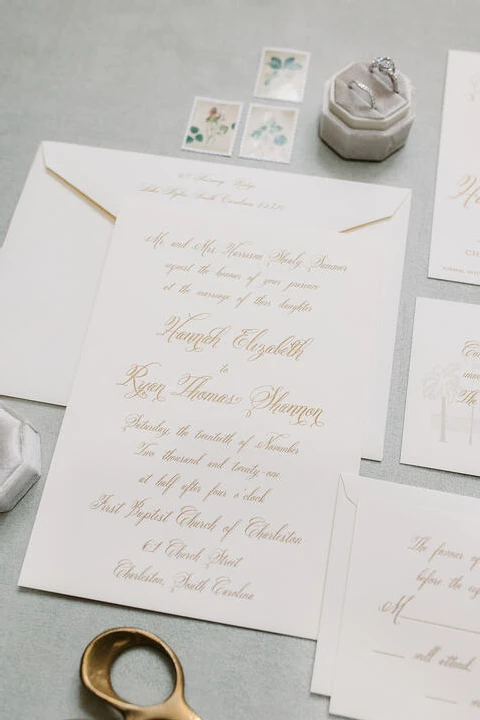 Lake Wylie, South Carolina 29710
Mr. and Mrs. Harrison Shealy Sumner
request the honour of your presence
at the marriage of their daughter
Hannah Elizabeth
to
Ryan Thomas Shannon
Saturday, the twentieth of November
Two thousand and twenty-one
at half after four o'clock
First Baptist Church of Charleston
61 Church Street
Charleston, South Carolina
The favour
before the
M
will attend